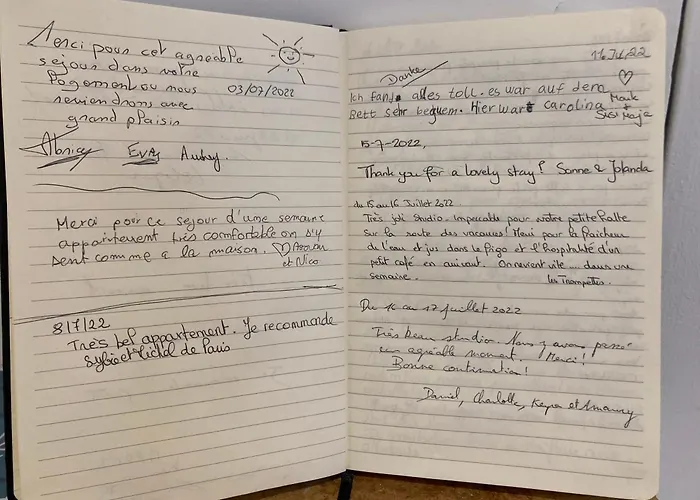 Merci pour cet agreable
sejour dans votre
logement ou nous
reviendrons avec
grand plaisir
03/07/2022
Evas Aubry.
Merci pour ce sejour d'une semaine
appartement très comfortable on s'y
sent comme a la maison.
et Nico
8/7/22
Très bel appartement. Je recommande
Sylvie et Michel de Paris
Danke
Ich fand alles toll. es war auf dem
Bett sehr bequem. Hier war Carolina
Maja
15-7-2022,
Thank you for a lovely stay! Sanne & Jolanda
du 15 au 16 Juillet 2022
Très joli studio. Impeccable pour notre petite halte
sur la route des vacances! Merci pour la fraicheur
de l'eau et jus dans le frigo et l'hospitalité d'un
petit café en arrivant. On revient vite... dans une
semaine. les Trompettes.
Du 16 au 17 juillet 2022
Très beau studio. Nous y avons passé
un agréable moment. Merci!
Bonne continuation!
Daniel, Charlotte, et Amaury